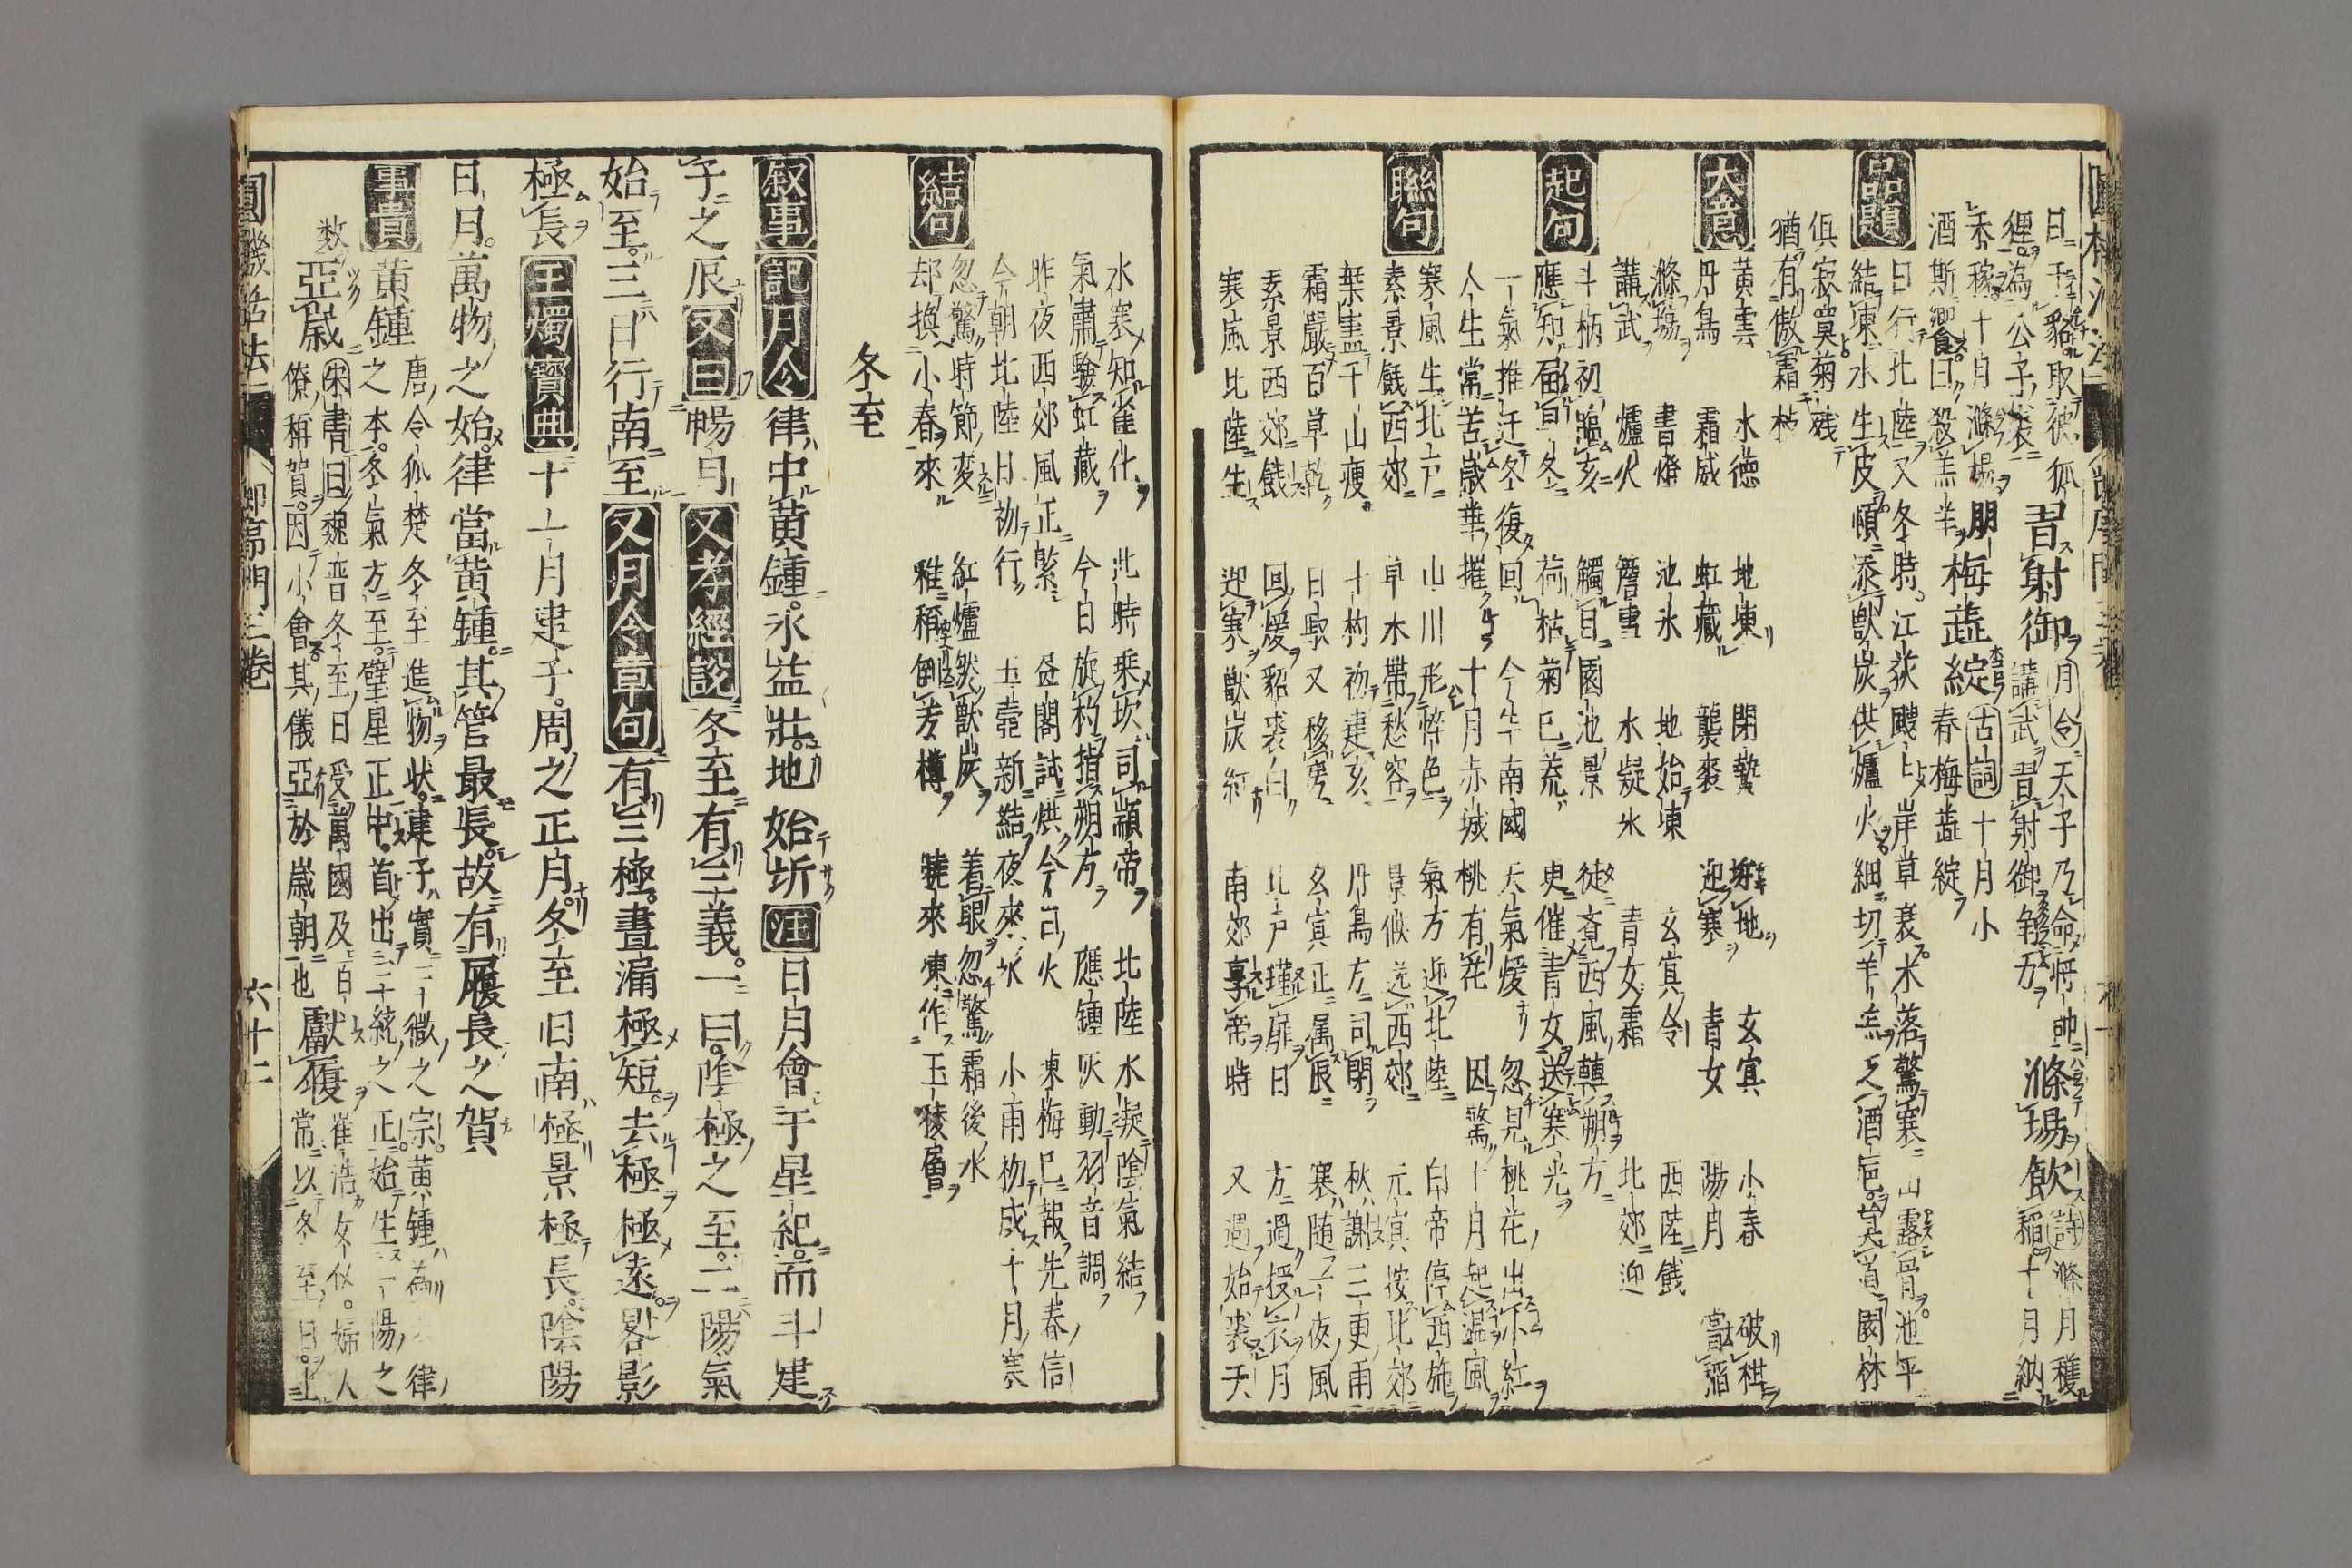 曰于貉取彼狐
狸為公子裘
習射御
月令天子乃命將帥
講武習射御
滌場飲
詩滌月穫
稻十月納
禾稼十月滌場朋
酒斯饗曰殺羔羊
梅蕋綻
古詞十月小
春梅蕋綻
品題
日行北陸又冬時江荻颼颼岸草衰水落驚寒山露骨池平
結凍水生皮頓添獸炭供爐火細切羊羔乏酒巵莫道園林
俱寂寞菊残
猶有傲霜枝
大意
黄雲 水德 地凍 閉蟄 坼地 玄冥 小春 破柑
丹鳥 霜威 虹藏 襲裘 迎寒 青女 陽月 嘗稲
滌場 書燈 池氷 地始凍 玄冥令 西陸餞
講武 爐火 簷雪 水凝氷 青女霜 北郊迎
起句
斗柄初臨亥 觸目園池景 徒覺西風轉朔方
應知届旨冬 荷枯菊已荒 更催青女送寒光
一氣推迁冬復回 今年南國天氣煖 忽見桃花出小紅
人生常苦歳華摧 十月赤城桃有花 因驚十月起温風
聯句
寒風生北戸 山川形悴色 氣方迎北陸 白帝停西施
素景餞西郊 草木帶愁容 景候送西郊 元冥按北郊
葉盡千山瘦 十杓初建亥 丹鳥方司閉 秋謝三更雨
霜嚴百草乾 日馭又移房 玄冥正属辰 寒随一夜風
素景西郊餞 回煖貂裘白 北戸墐扉日 方過授衣月
寒嵐北陸生 迎寒獸炭紅 南郊享帝時 又過始裘天
水寒知雀化 此時乘坎司顓帝 北陸水凝陰氣結
氣肅驗虹藏 今日旋杓指朔方 應鍾灰動羽音調
昨夜西郊風正緊 昼閣試烘今日火 凍梅已報先春信
今朝北陸日初行 玉壼新結夜來氷 小雨初成十月寒
結句
忽驚時節変 紅爐然獸炭 着眼忽驚霜後水
却換小春來 稚稱倒芳樽 暁來凍作玉稜層
冬至
叙事 記月令 律中黄鍾氷益壯地始坼 注 日月會于星紀而斗建
子之辰 又曰 暢月 又孝經説 冬至有三義一曰陰極之至二陽氣
始至三日行南至 又月令章句 有三極晝漏極短去極極遠晷影
極長 玉燭寶典 十一月建子周之正月冬至日南極景極長陰陽
日月萬物之始律當黄鍾其管最長故有履長之賀
事實
黄鍾
唐令狐楚冬至進物状建子實三微之宗黄鍾為律
之本冬氣方至璧星正中首出三統之正始生一陽之
数
亞歳
宋書曰魏晋冬至日受萬國及百
僚稱賀因小會其儀亞於歳朝也
獻履
崔浩女仪婦人
常以冬至日上
圓機活法 節序門三巻 六十二